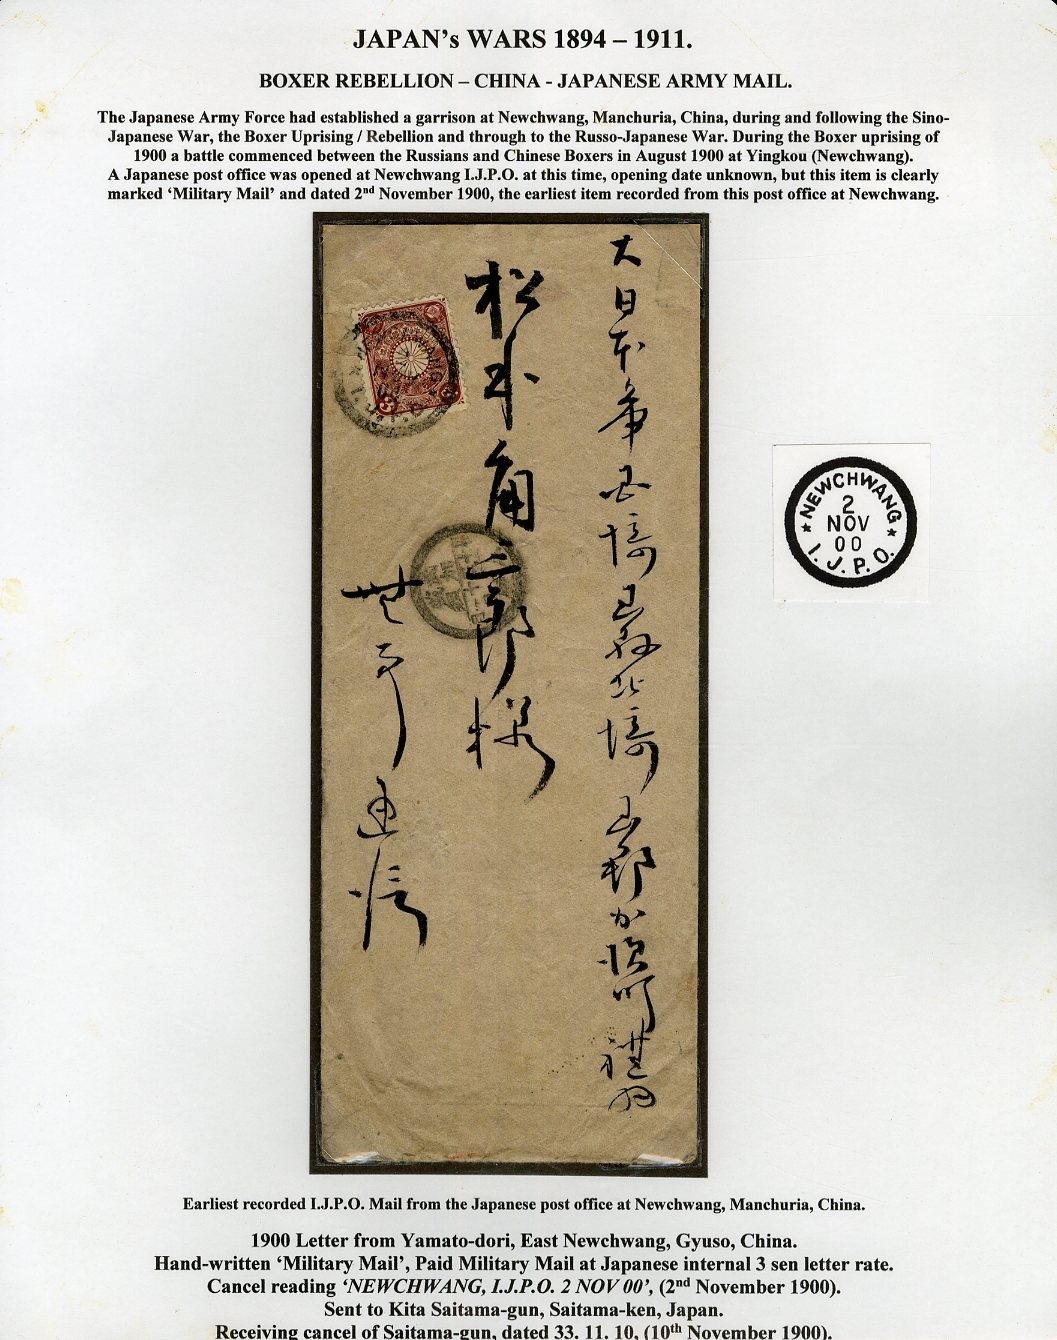 JAPAN's WARS 1894 – 1911.
BOXER REBELLION – CHINA - JAPANESE ARMY MAIL.
The Japanese Army Force had established a garrison at Newchwang, Manchuria, China, during and following the Sino-
Japanese War, the Boxer Uprising / Rebellion and through to the Russo-Japanese War. During the Boxer uprising of
1900 a battle commenced between the Russians and Chinese Boxers in August 1900 at Yingkou (Newchwang).
A Japanese post office was opened at Newchwang I.J.P.O. at this time, opening date unknown, but this item is clearly
marked ‘Military Mail’ and dated 2nd November 1900, the earliest item recorded from this post office at Newchwang.
大日本
埼玉県北埼玉郡
松本角三郎様
NEWCHWANG
2
NOV
00
I.J.P.O.
Earliest recorded I.J.P.O. Mail from the Japanese post office at Newchwang, Manchuria, China.
1900 Letter from Yamato-dori, East Newchwang, Gyuso, China.
Hand-written ‘Military Mail’, Paid Military Mail at Japanese internal 3 sen letter rate.
Cancel reading ‘NEWCHWANG, I.J.P.O. 2 NOV 00’, (2nd November 1900).
Sent to Kita Saitama-gun, Saitama-ken, Japan.
Receiving cancel of Saitama-gun, dated 33. 11. 10, (10th November 1900).